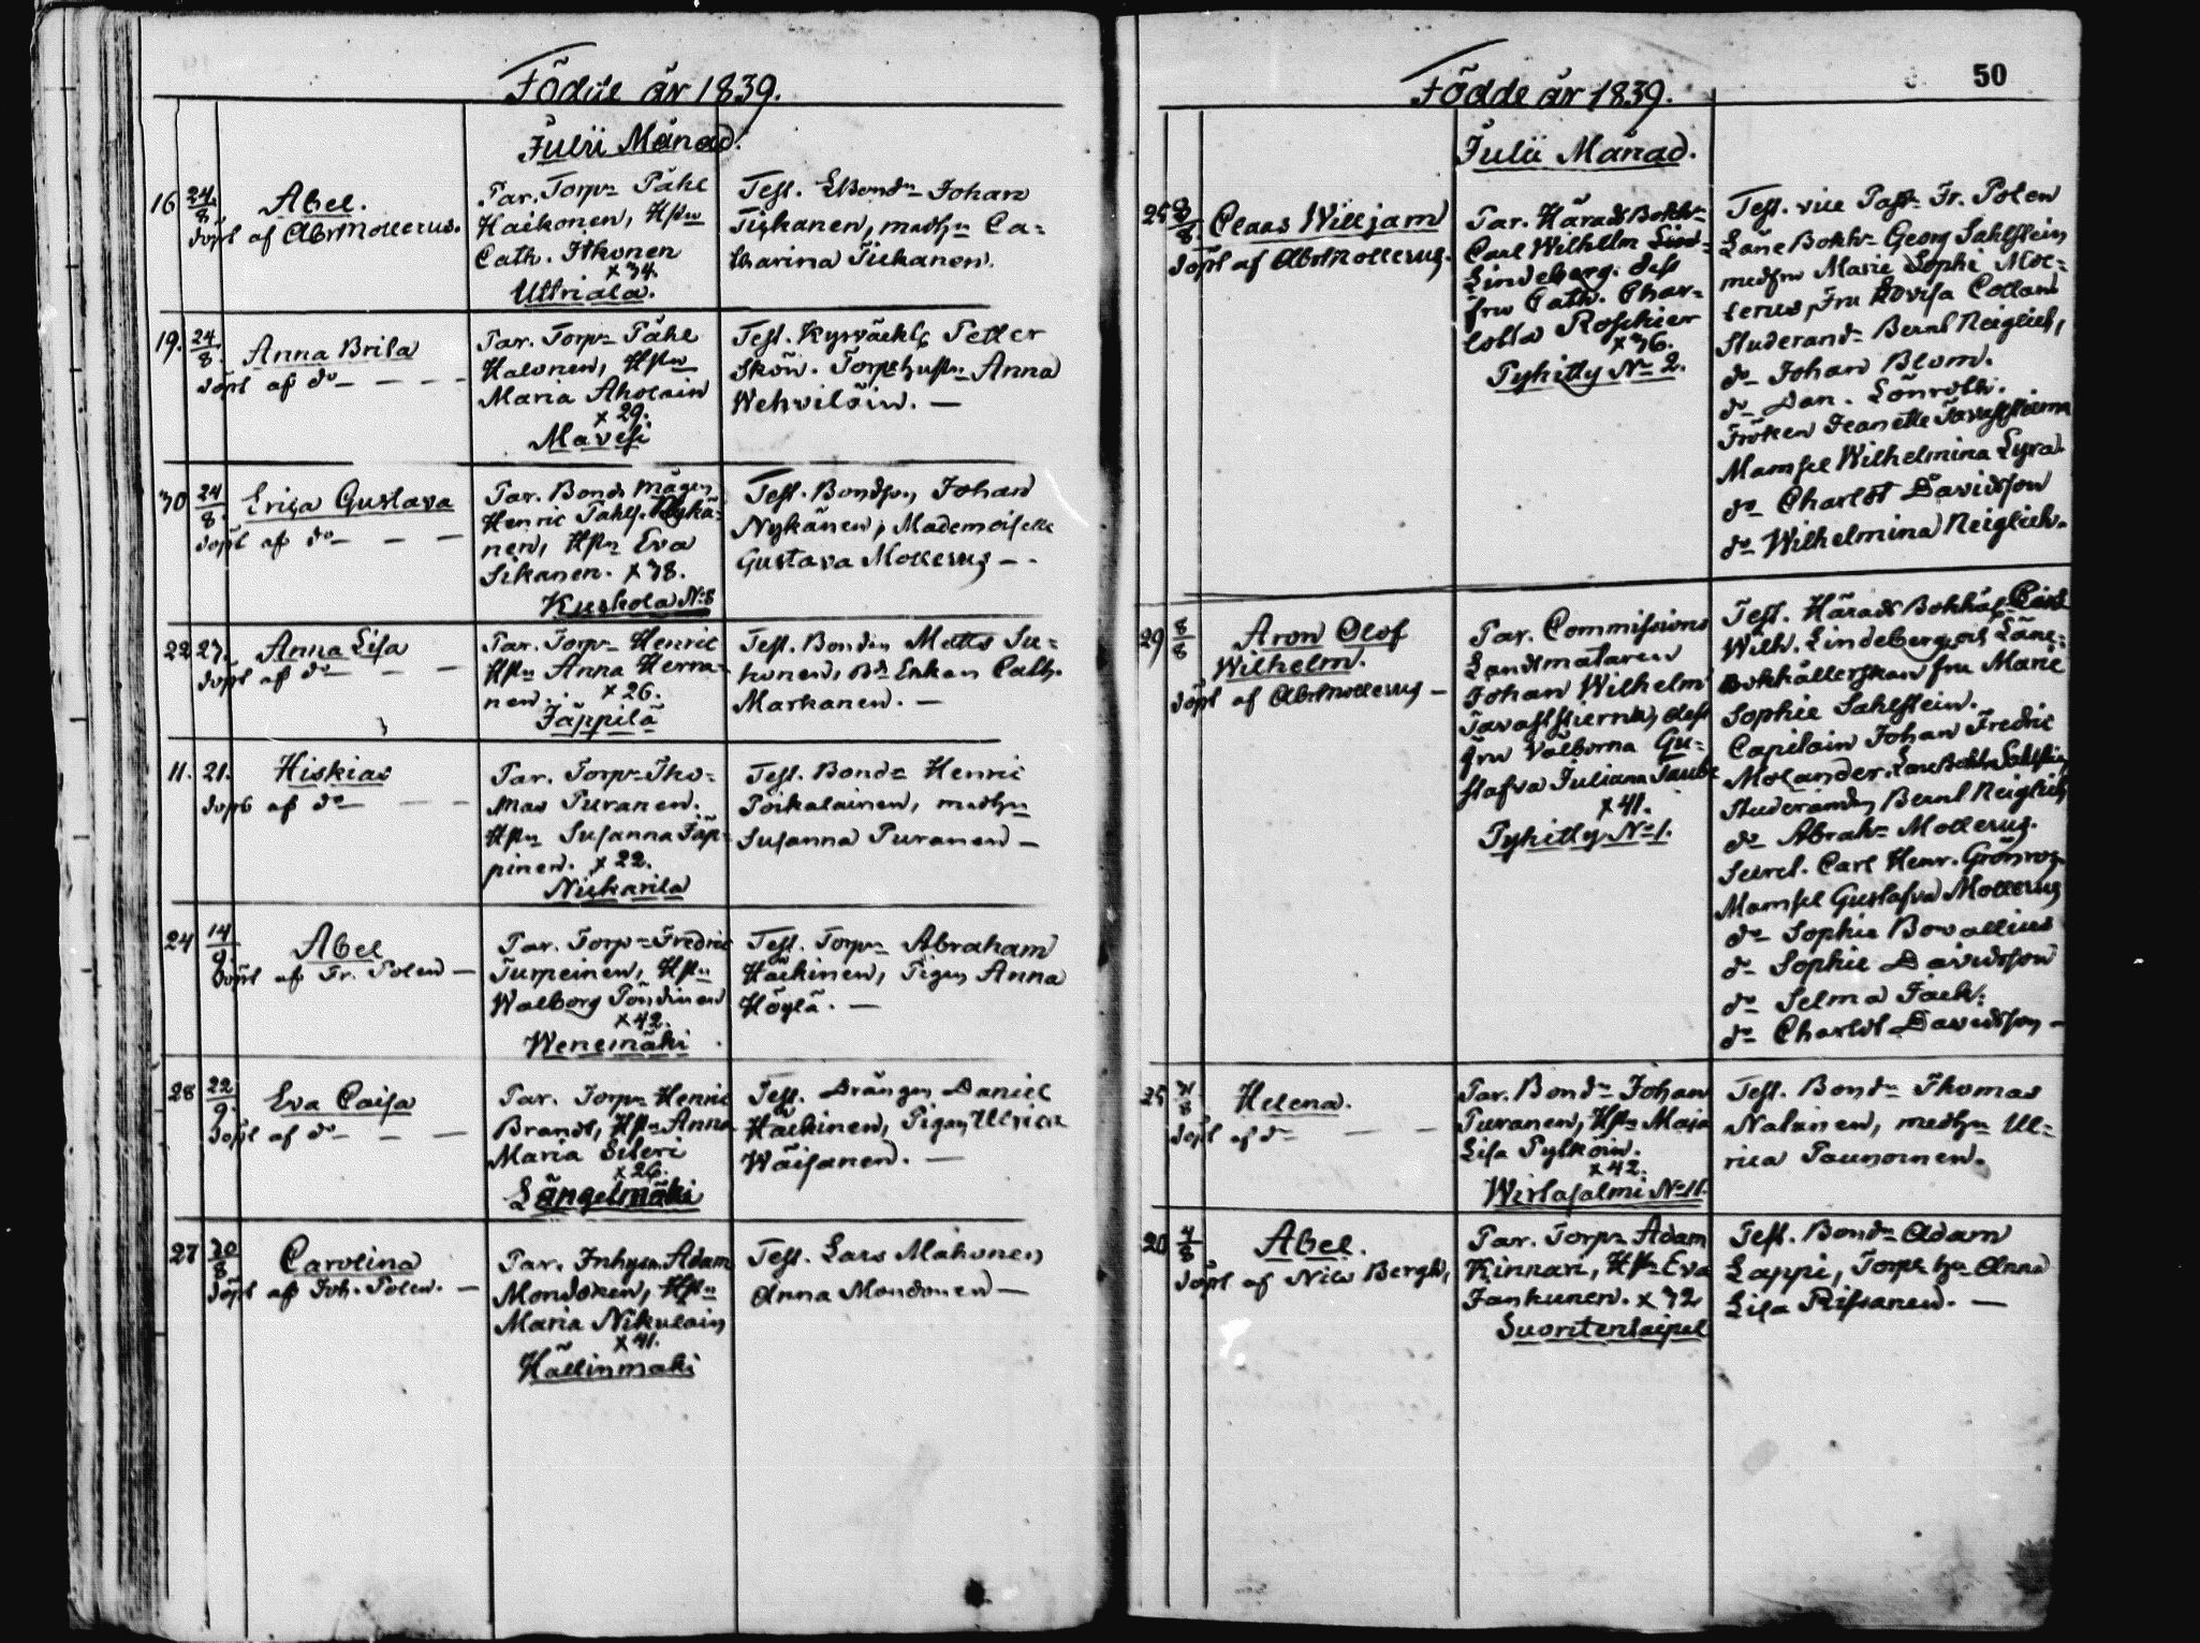 Födde år 1839.
Julii Månad.
16 24/8 Abel.
döpt af Abr Mollerus.
Par. Torpn Påhl
Haikonen, Hfru
Cath. Itkonen
x 34.
Uttriala.
Test. Bondn Johan
Tiihkanen, medhu Ca-
tharina Tiihkanen.
19. 24/8. Anna Brita
döpt af do
Par. Torpn Påhl
Halonen, Hfru
Maria Aholain
x 29.
Mavesi
Test. Petter
Skön. Torpehustru Anna
Wehviläin. —
30 24/8. Erica Gustava
döpt af do
Par. Bonde Mågen
Henric Pahls. Nykä-
nen, Hfru Eva
Sikanen. x 38.
Kuskola No 8
Test. Bondson Johan
Nykänen, Mademoiselle
Gustava Mollerus
22 27. Anna Lisa
döpt af do
Par. Torpn Henric
Hfru Anna Herra-
nen. x 26.
Jäppilä
Test. Bonden Matts Su-
honen, Enkan Cath.
Markanen. —
11. 21. Hiskias
döpt af do
Par. Torpn Tho-
mas Puranen.
Hfru Susanna Jäp-
pinen. x 22.
Niskarila
Test. Bondn Henric
Poikalainen, medhu
Susanna Puranen —
24 14/9. Abel
döpt af Fr. Polen —
Par. Torpn Fredric
Turpeinen, Hfru
Walborg Pöndinen
x 42.
Wenemäki
Test. Torpn Abraham
Häkinen, Pigan Anna
Höylä. —
28 22/9. Eva Caisa
döpt af do
Par. Torpn Henric
Brandt, Hfru Anna
Maria Sileri
x 26.
Längelmäki
Test. Drängen Daniel
Häkinen, Pigan Ulrica
Wäisänen. —
27 30/8 Carolina
döpt af Joh. Polen. —
Par. Inhysn Adam
Mondonen, Hfru
Maria Nikulain
x 41.
Hällinmäki
Test. Lars Mahonen
Anna Mondonen —
50
Födde år 1839.
Julii Månad.
Claas Willijam
döpt af Abr Mollerus.
Par. Härads Bokhr
Carl Wilhelm
Lindeberg. dess
fru Cath. Char-
lotta Roschier
x 36.
Pyhitty No 2.
Test. vice Past. Fr. Polen
Läne Bokhr Georg Sahlstein
medfru Marie Sophi Mol-
lerus, Fru Hedvisa Collan
Studerand Bernt Neiglick,
do Johan Blom.
do Dan. Lönroth.
Fröken Jeanette Tavaststierna
Mamsel Wilhelmina Lyra.
do Charlot Davidsson
do Wilhelmina Neiglick.
29 8/8 Aron Olof
Wilhelm.
döpt af Abr Mollerus —
Par. Commissions
Landtmätaren
Johan Wilhelm
Tavaststierna, dess
fru Välborna Gu-
stafva Juliana Taube
x 41.
Pyhitty No 1.
Test. Härads Bokhål. Carl
Wilh. Lindeberg, och Läne-
Bokhållerskan fru Marie
Sophie Sahlstein.
Capitain Johan Fredric
Molander, Läne Bokhr Sahlstein
Studeranden Bernt Neiglick
do Abrahm Mollerus.
Secret. Carl Henr. Grönroz.
Mamsel Gustafva Mollerus
do Sophie Bovallius
do Sophie Davidsson
do Selma Jack.
do Charlot Davidsson —
25 Helena.
döpt af do
Par. Bondn Johan
Puranen, Hfru Maja
Lisa Pylköin.
x 42.
Wirtasalmi No 11.
Test. Bondn Thomas
Nalinen, medhu Ul-
rica Paunoinen.
20 4/8 Abel.
döpt af Nils Bergh,
Par. Torpn Adam
Kinnari, Hfru Eva
Janhunen. x 32
Suontenlaipal
Test. Bondn Adam
Lappi, Torp. hu Anna
Lisa Rissanen. —